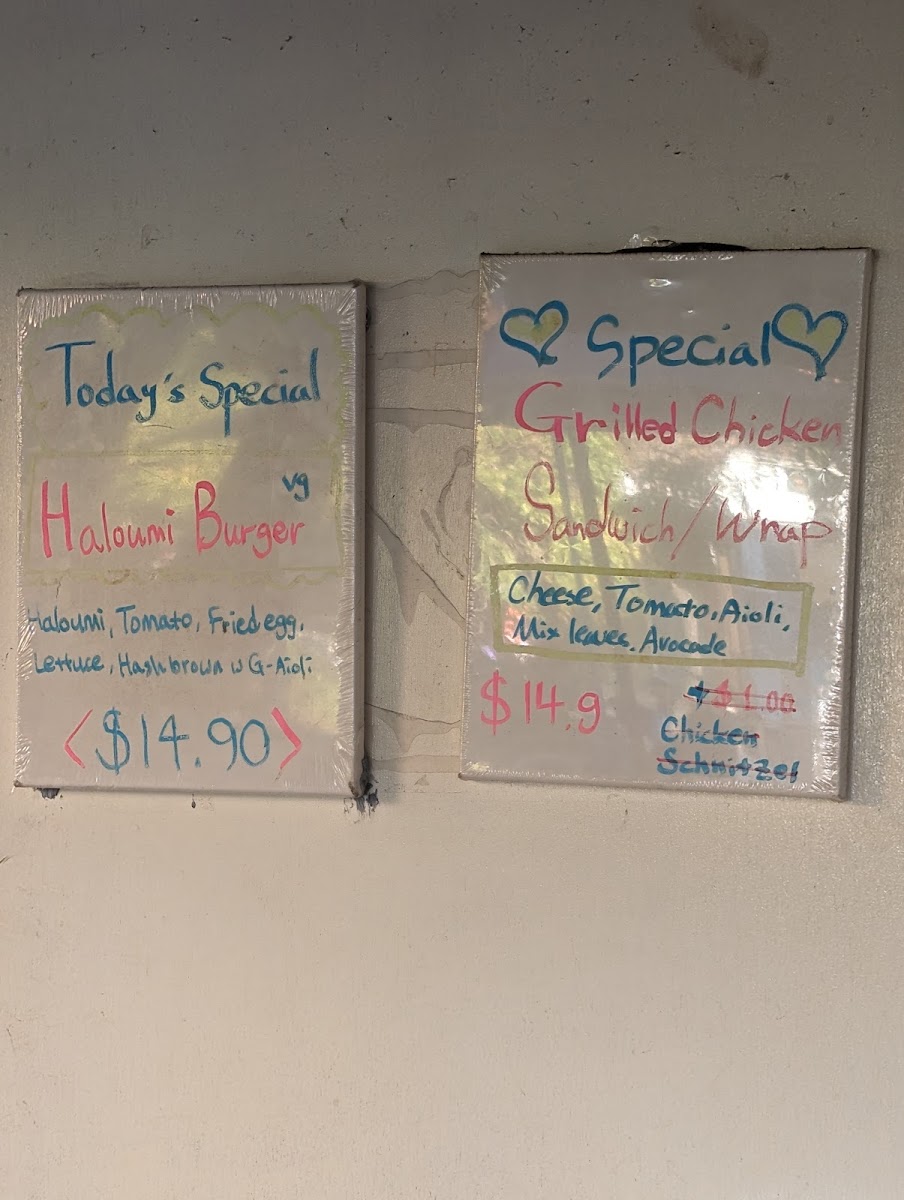 Today's Special
vg
Haloumi Burger
Haloumi, Tomato, Fried egg,
Lettuce, Hashbrown w G-Aioli
<$14.90>
Special
Grilled Chicken
Sandwich/Wrap
Cheese, Tomato, Aioli,
Mix leaves, Avocade
$14.9
+$1.00
Chicken
Schnitzel